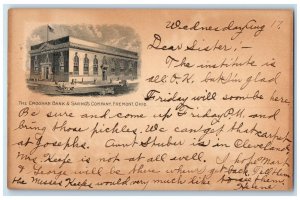 Wednesday Aug 17
Dear Sister:-
The institute is
all O.K. but I'm glad
THE CROGHAN BANK & SAVINGS COMPANY, FREMONT, OHIO.
Friday will soon be here
Be sure and come up Friday P.M. and
bring those pickles. We can get that carpet
at Josephs. Aunt Stuber is in Cleveland
Mrs. Keefe is not at all well. I hope Mart
& George will be there when I get back
the Misses Keefe would very much like to see them
Helene